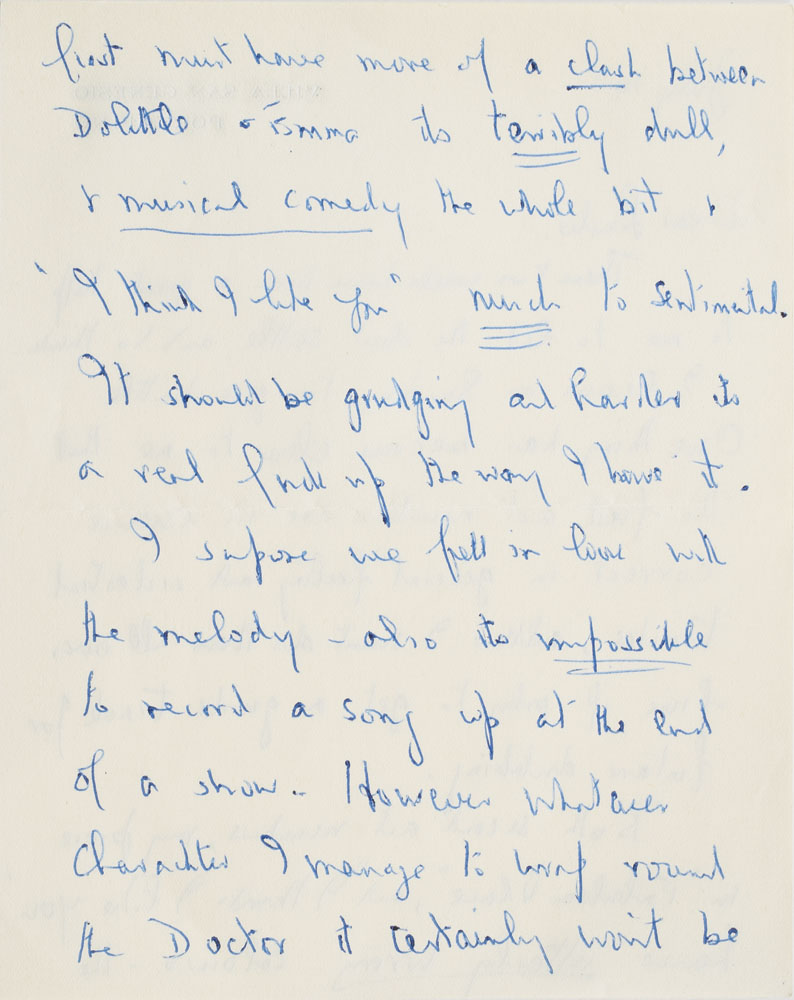 first must have more of a clash between
Dolittle + Emma its terribly dull,
+ musical comedy the whole bit,
"I think I like you" much to sentimental.
It should be grudging and harder its
a real fuck up the way I have it.
I supose we fell in love with
the melody - also its impossible
to record a song up at the end
of a show. - However whatever
Charachter I manage to wrap round
the Doctor it certainly wont be